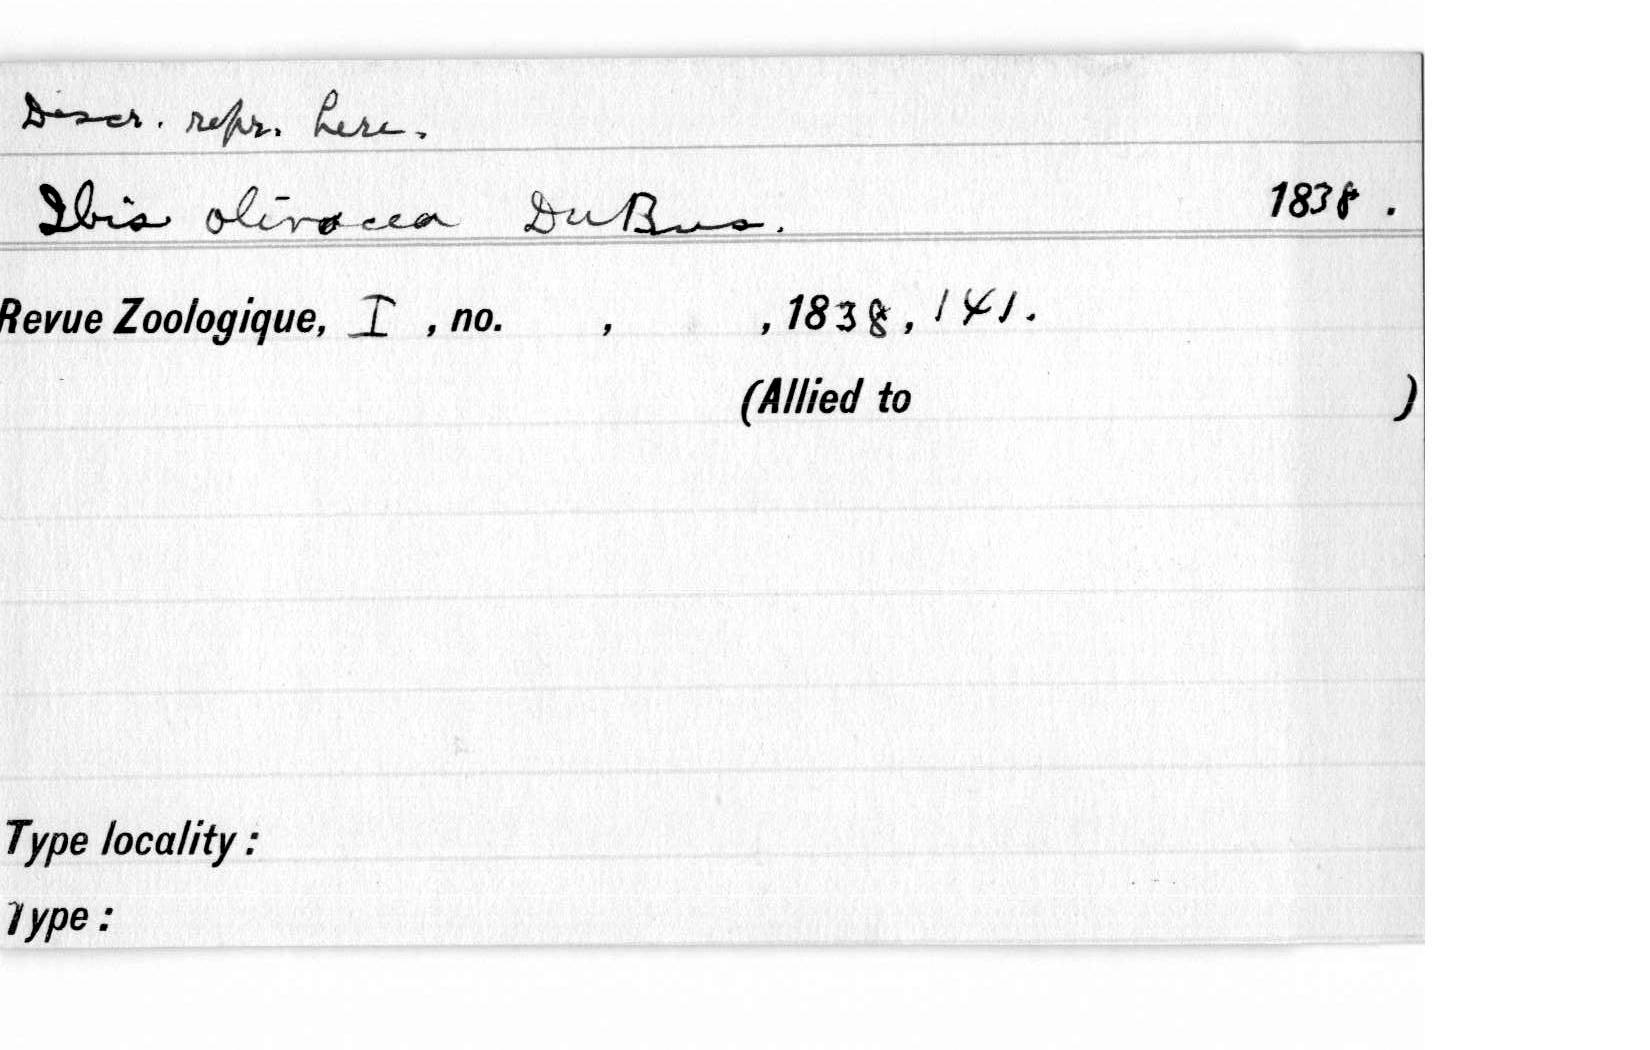 Descr. repr. here.
Ibis olivacea DuBus. 1838.
Revue Zoologique, I, no. , , 1838, 141.
(Allied to )
Type locality:
Type: